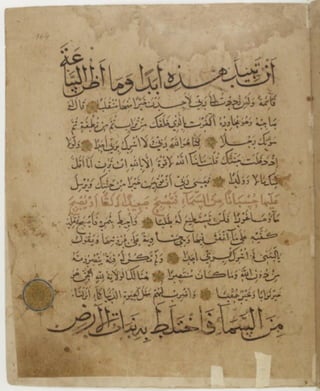 ان تبيد هذه ابدا وما اظن الساعة
قائمة ولئن رددت الى ربي لاجدن خيرا منها منقلبا قال له
صاحبه وهو يحاوره اكفرت بالذي خلقك من تراب ثم من نطفة ثم
سويك رجلا لكنا هو الله ربي ولا اشرك بربي احدا ولولا
اذ دخلت جنتك قلت ما شاء الله لا قوة الا بالله ان ترن انا اقل
منك مالا وولدا فعسى ربي ان يؤتين خيرا من جنتك ويرسل
عليها حسبانا من السماء فتصبح صعيدا زلقا او يصبح
ماؤها غورا فلن تستطيع له طلبا واحيط بثمره فاصبح يقلب
كفيه على ما انفق فيها وهي خاوية على عروشها ويقول
يليتني لم اشرك بربي احدا ولم تكن له فئة ينصرونه
من دون الله وما كان منتصرا هنالك الولاية لله الحق هو
خير ثوابا وخير عقبا واضرب لهم مثل الحيوة الدنيا كماء انزلناه
من السماء فاختلط به نبات الارض